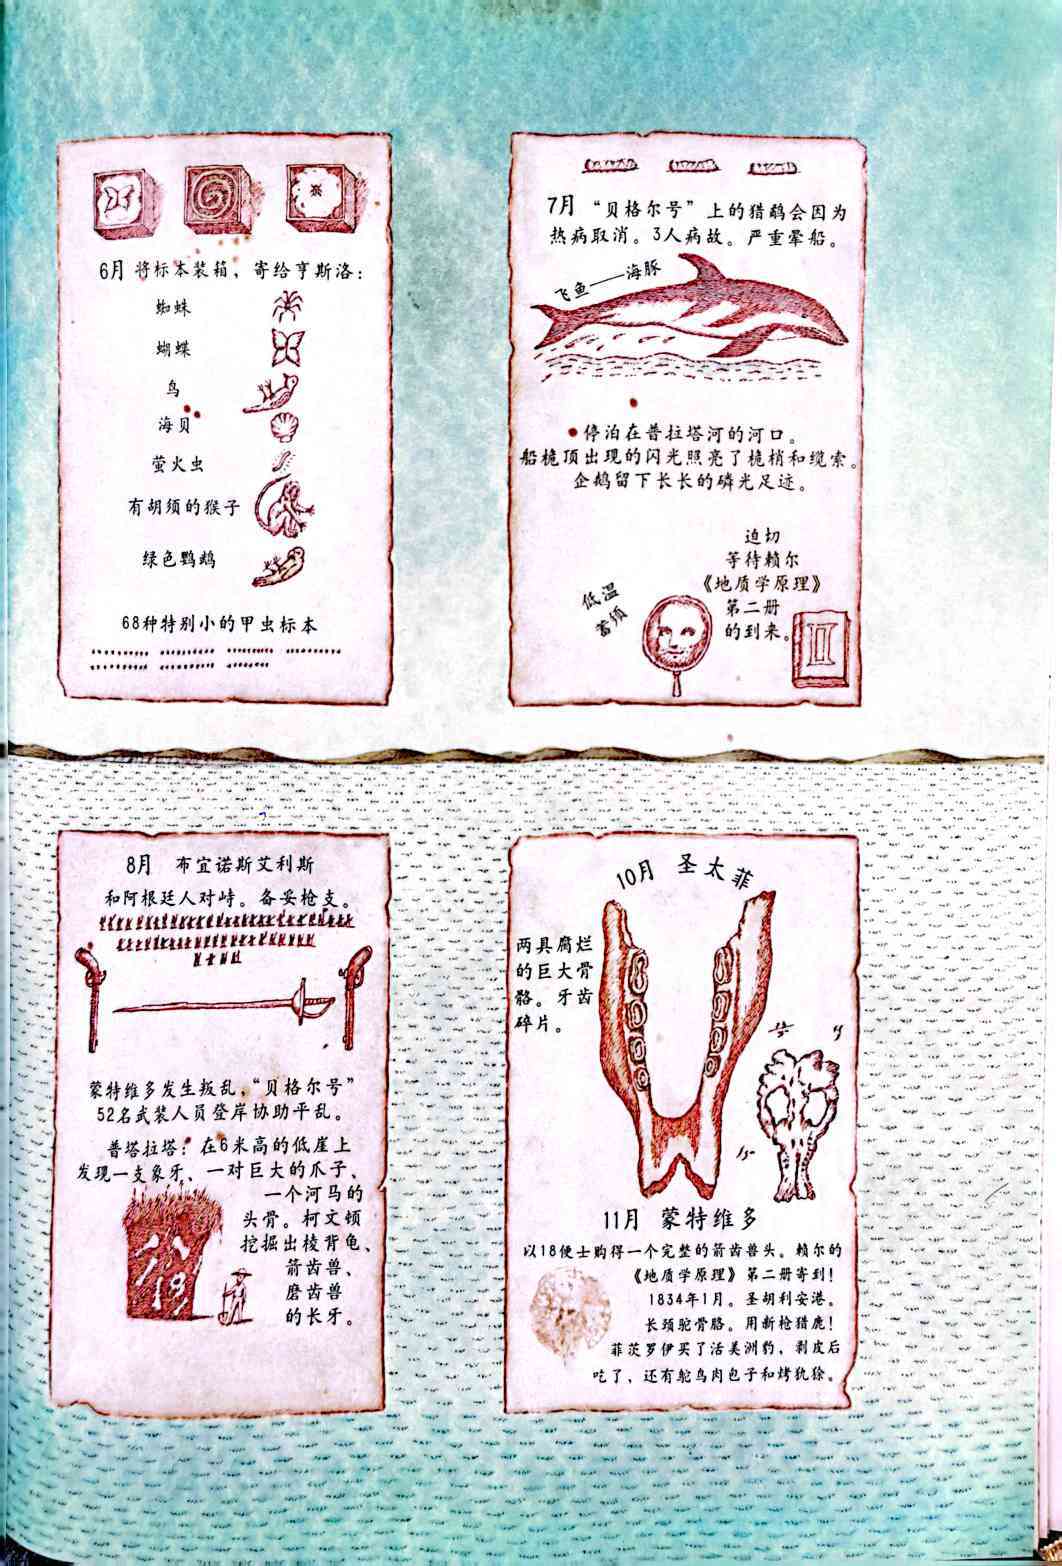 6月 将标本装箱，寄给亨斯洛：
蜘蛛
蝴蝶
鸟
海贝
萤火虫
有胡须的猴子
绿色鹦鹉
68种特别小的甲虫标本
7月 “贝格尔号”上的猎鹬会因为
热病取消。3人病故。严重晕船。
飞鱼——海豚
停泊在普拉塔河的河口。
船桅顶出现的闪光照亮了桅梢和缆索。
企鹅留下长长的磷光足迹。
迫切
等待赖尔
《地质学原理》
第二册
的到来。
低温
蓄须
II
8月 布宜诺斯艾利斯
和阿根廷人对峙。备妥枪支。
蒙特维多发生叛乱，“贝格尔号”
52名武装人员登岸协助平乱。
普塔拉塔：在6米高的低崖上
发现一支象牙、一对巨大的爪子、
一个河马的
头骨。柯文顿
挖掘出棱背龟、
箭齿兽、
磨齿兽
的长牙。
10月 圣太菲
两具腐烂
的巨大骨
骼。牙齿
碎片。
11月 蒙特维多
以18便士购得一个完整的箭齿兽头。赖尔的
《地质学原理》第二册寄到！
1834年1月。圣胡利安港。
长颈驼骨骼。用新枪猎鹿！
菲茨罗伊买了活美洲豹，剥皮后
吃了，还有鸵鸟肉包子和烤犰狳。